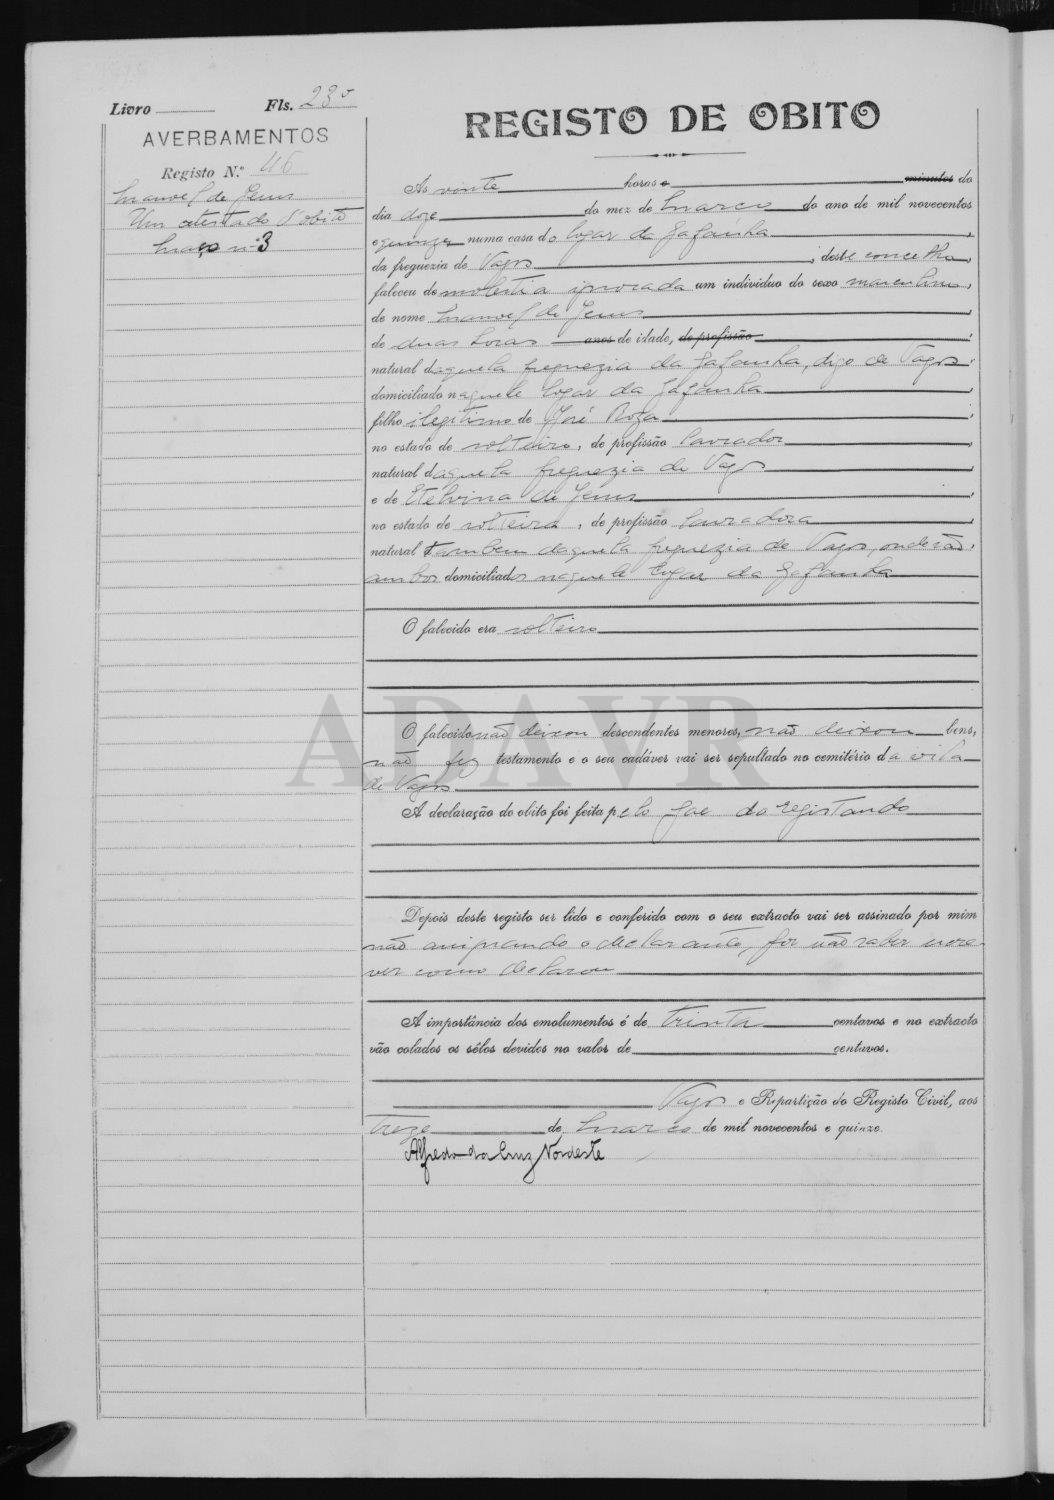 Livro Fls. 23 v
AVERBAMENTOS
Registo N.º 46
Manoel de Jesus
Um atestado d'obito
Maço nº 3
REGISTO DE OBITO
As vinte horas e minutos do
dia doze do mez de Março do ano de mil novecentos
e quinze numa casa do logar da Gafanha,
da freguezia de Vagos, deste concelho,
faleceu de molestia ignorada um individuo do sexo masculino,
de nome Manoel de Jesus,
de duas horas anos de idade, de profissão,
natural daquela freguezia da Gafanha, digo de Vagos,
domiciliado naquele logar da Gafanha,
filho ilegitimo de José Roza,
no estado de solteiro, de profissão lavrador,
natural daquela freguezia de Vagos,
e de Etelvina de Jesus,
no estado de solteira, de profissão lavradora,
natural tambem daquela freguezia de Vagos, onde são,
ambos domiciliados naquele logar da Gafanha
O falecido era solteiro
ADAVR
O falecido não deixou descendentes menores, não deixou bens,
não fez testamento e o seu cadáver vai ser sepultado no cemitério da vila
de Vagos
A declaração do obito foi feita pelo pae do registando
Depois deste registo ser lido e conferido com o seu extracto vai ser assinado por mim
não assignando o declarante, por não saber escre-
ver como declarou
A importância dos emolumentos é de trinta centavos e no extracto
vão colados os sêlos devidos no valor de centavos.
Vagos e Repartição do Registo Civil, aos
treze de Março de mil novecentos e quinze.
Alfredo da Cruz Nordeste